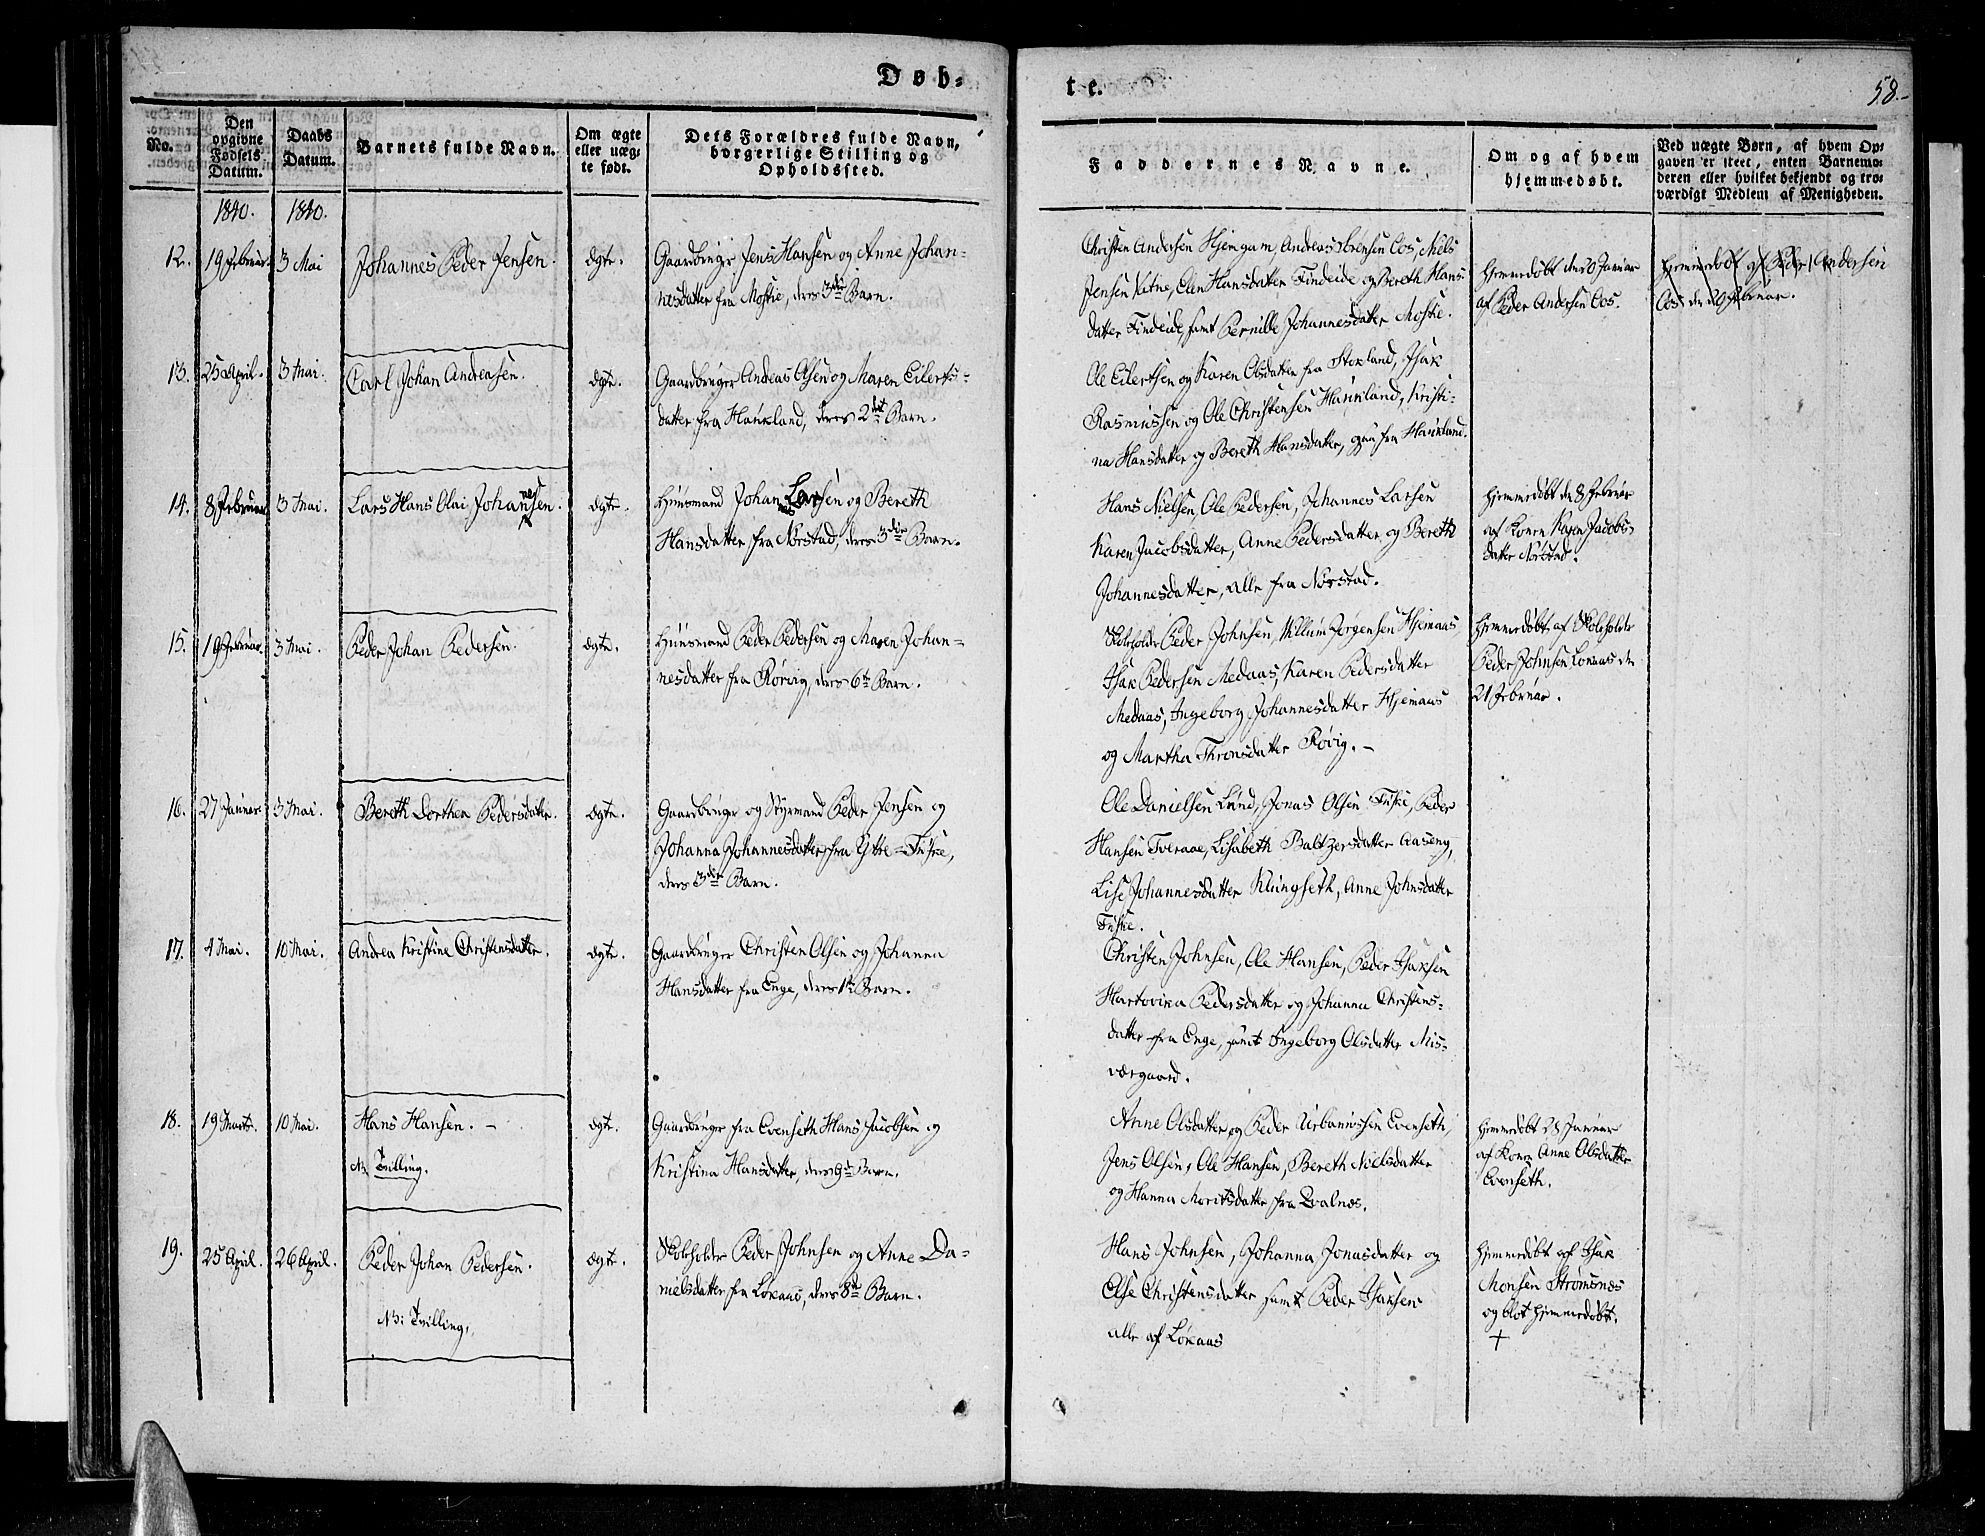 Døb-
te.
58.-
No.
Den
opgivne
Fødsels
Datum.
Daabs
Datum.
Barnets fulde Navn.
Om ægte
eller uæg-
te født.
Dets Forældres fulde Navn,
borgerlige Stilling og
Opholdssted.
Faddernes Navne.
Om og af hvem
hjemmedøbt.
Ved uægte Børn, af hvem Op-
gaven er skeet, enten Barnemo-
deren eller hvilket bekjendt og tro-
værdigt Medlem af Menigheden.
1840. 1840.
12. 19 Februar. 3 Mai Johannes Peder Jensen. ægte.
Gaardbruger Jens Hansen og Anne Johan-
nesdatter fra Moskie, deres 3die Barn.
Christen Andersen Hjemgam, Andreas Sørensen Oos, Niels
Jensen Vitne, Elen Hansdatter Findeide og Bereth Hans-
datter Findeide, samt Pernille Johannesdatter Moskie.
Hjemmedøbt den 20 Januar
af Peder Andersen Oos.
Hjemmedøbt af Peder Andersen
Oos den 20 Februar.
13. 25 April. 3 Mai. Carl Johan Andreasen. ægte.
Gaardbruger Andreas Olsen og Maren Eilerts-
datter fra Haukland, deres 2det Barn.
Ole Eilertsen og Karen Olsdatter fra Stokland, Isak
Rasmussen og Ole Christensen Haukland, Kristi-
na Hansdatter og Bereth Hansdatter, fra Haukland.
14. 8 Februar 3 Mai. Lars Hans Olai Johannesen. ægte.
Huusmand Johannes Larsen og Bereth
Hansdatter fra Nørstad, deres 3die Barn.
Hans Nielsen, Ole Pedersen, Johannes Larsen
Karen Jacobsdatter, Anne Pedersdatter og Bereth
Johannesdatter, alle fra Nørstad.
Hjemmedøbt den 8 Februar
af Konen Karen Jacobs-
datter Nørstad.
15. 19 Februar. 3 Mai. Peder Johan Pedersen. ægte.
Huusmand Peder Pedersen og Maren Johan-
nesdatter fra Rørvig, deres 6te Barn.
Skoleholder Peder Johnsen, Willum Jørgensen Hjemaas
Isak Pedersen Medaas, Karen Pedersdatter
Medaas, Ingeborg Johannesdatter Hjemaas
og Martha Thronsdatter Røvig. -
Hjemmedøbt af Skoleholder
Peder Johnsen Lokaas den
21 Februar.
16. 27 Januar. 3 Mai. Bereth Dorthea Pedersdatter. ægte.
Gaardbruger og Styrmand Peder Jensen og
Johanna Johannesdatter fra Ytre-Fuske,
deres 3die Barn.
Ole Danielsen Lund, Jonas Olsen Fuske, Peder
Hansen Tveraae, Lisabeth Baltzersdatter Aaseng,
Lise Johannesdatter Klungseth, Anne Johnsdatter
Fuske.
17. 4 Mai. 10 Mai. Andrea Kristine Christensdatter. ægte.
Gaardbruger Christen Olsen og Johanna
Hansdatter fra Enge, deres 1te Barn.
Christen Johnsen, Ole Hansen, Peder Isaksen
Hartvika Pedersdatter og Johanna Christens-
datter fra Enge, samt Ingeborg Olsdatter Mis-
værgaard.
18. 19 Marts. 10 Mai. Hans Hansen. - ægt.
NB Tvilling.
Gaardbruger fra Evenseth Hans Jacobsen og
Kristina Hansdatter, deres 9de Barn.
Anne Olsdatter og Peder Urbanussen Evenseth,
Jens Olsen, Ole Hansen, Bereth Nielsdatter
og Hanna Moritsdatter fra Qvalnes.
Hjemmedøbt 28 Januar
af Konen Anne Olsdatter
Evenseth.
19. 25 April. 26 April. Peder Johan Pedersen. ægt.
NB: Tvilling.
Skoleholder Peder Johnsen og Anne Da-
nielsdatter fra Lokaas, deres 8de Barn.
Hans Johnsen, Johanna Jonasdatter og
Else Christensdatter samt Peder Isaksen
alle af Lokaas
Hjemmedøbt af Isak
Monsen Strømsnes
og blot hjemmedøbt.
+